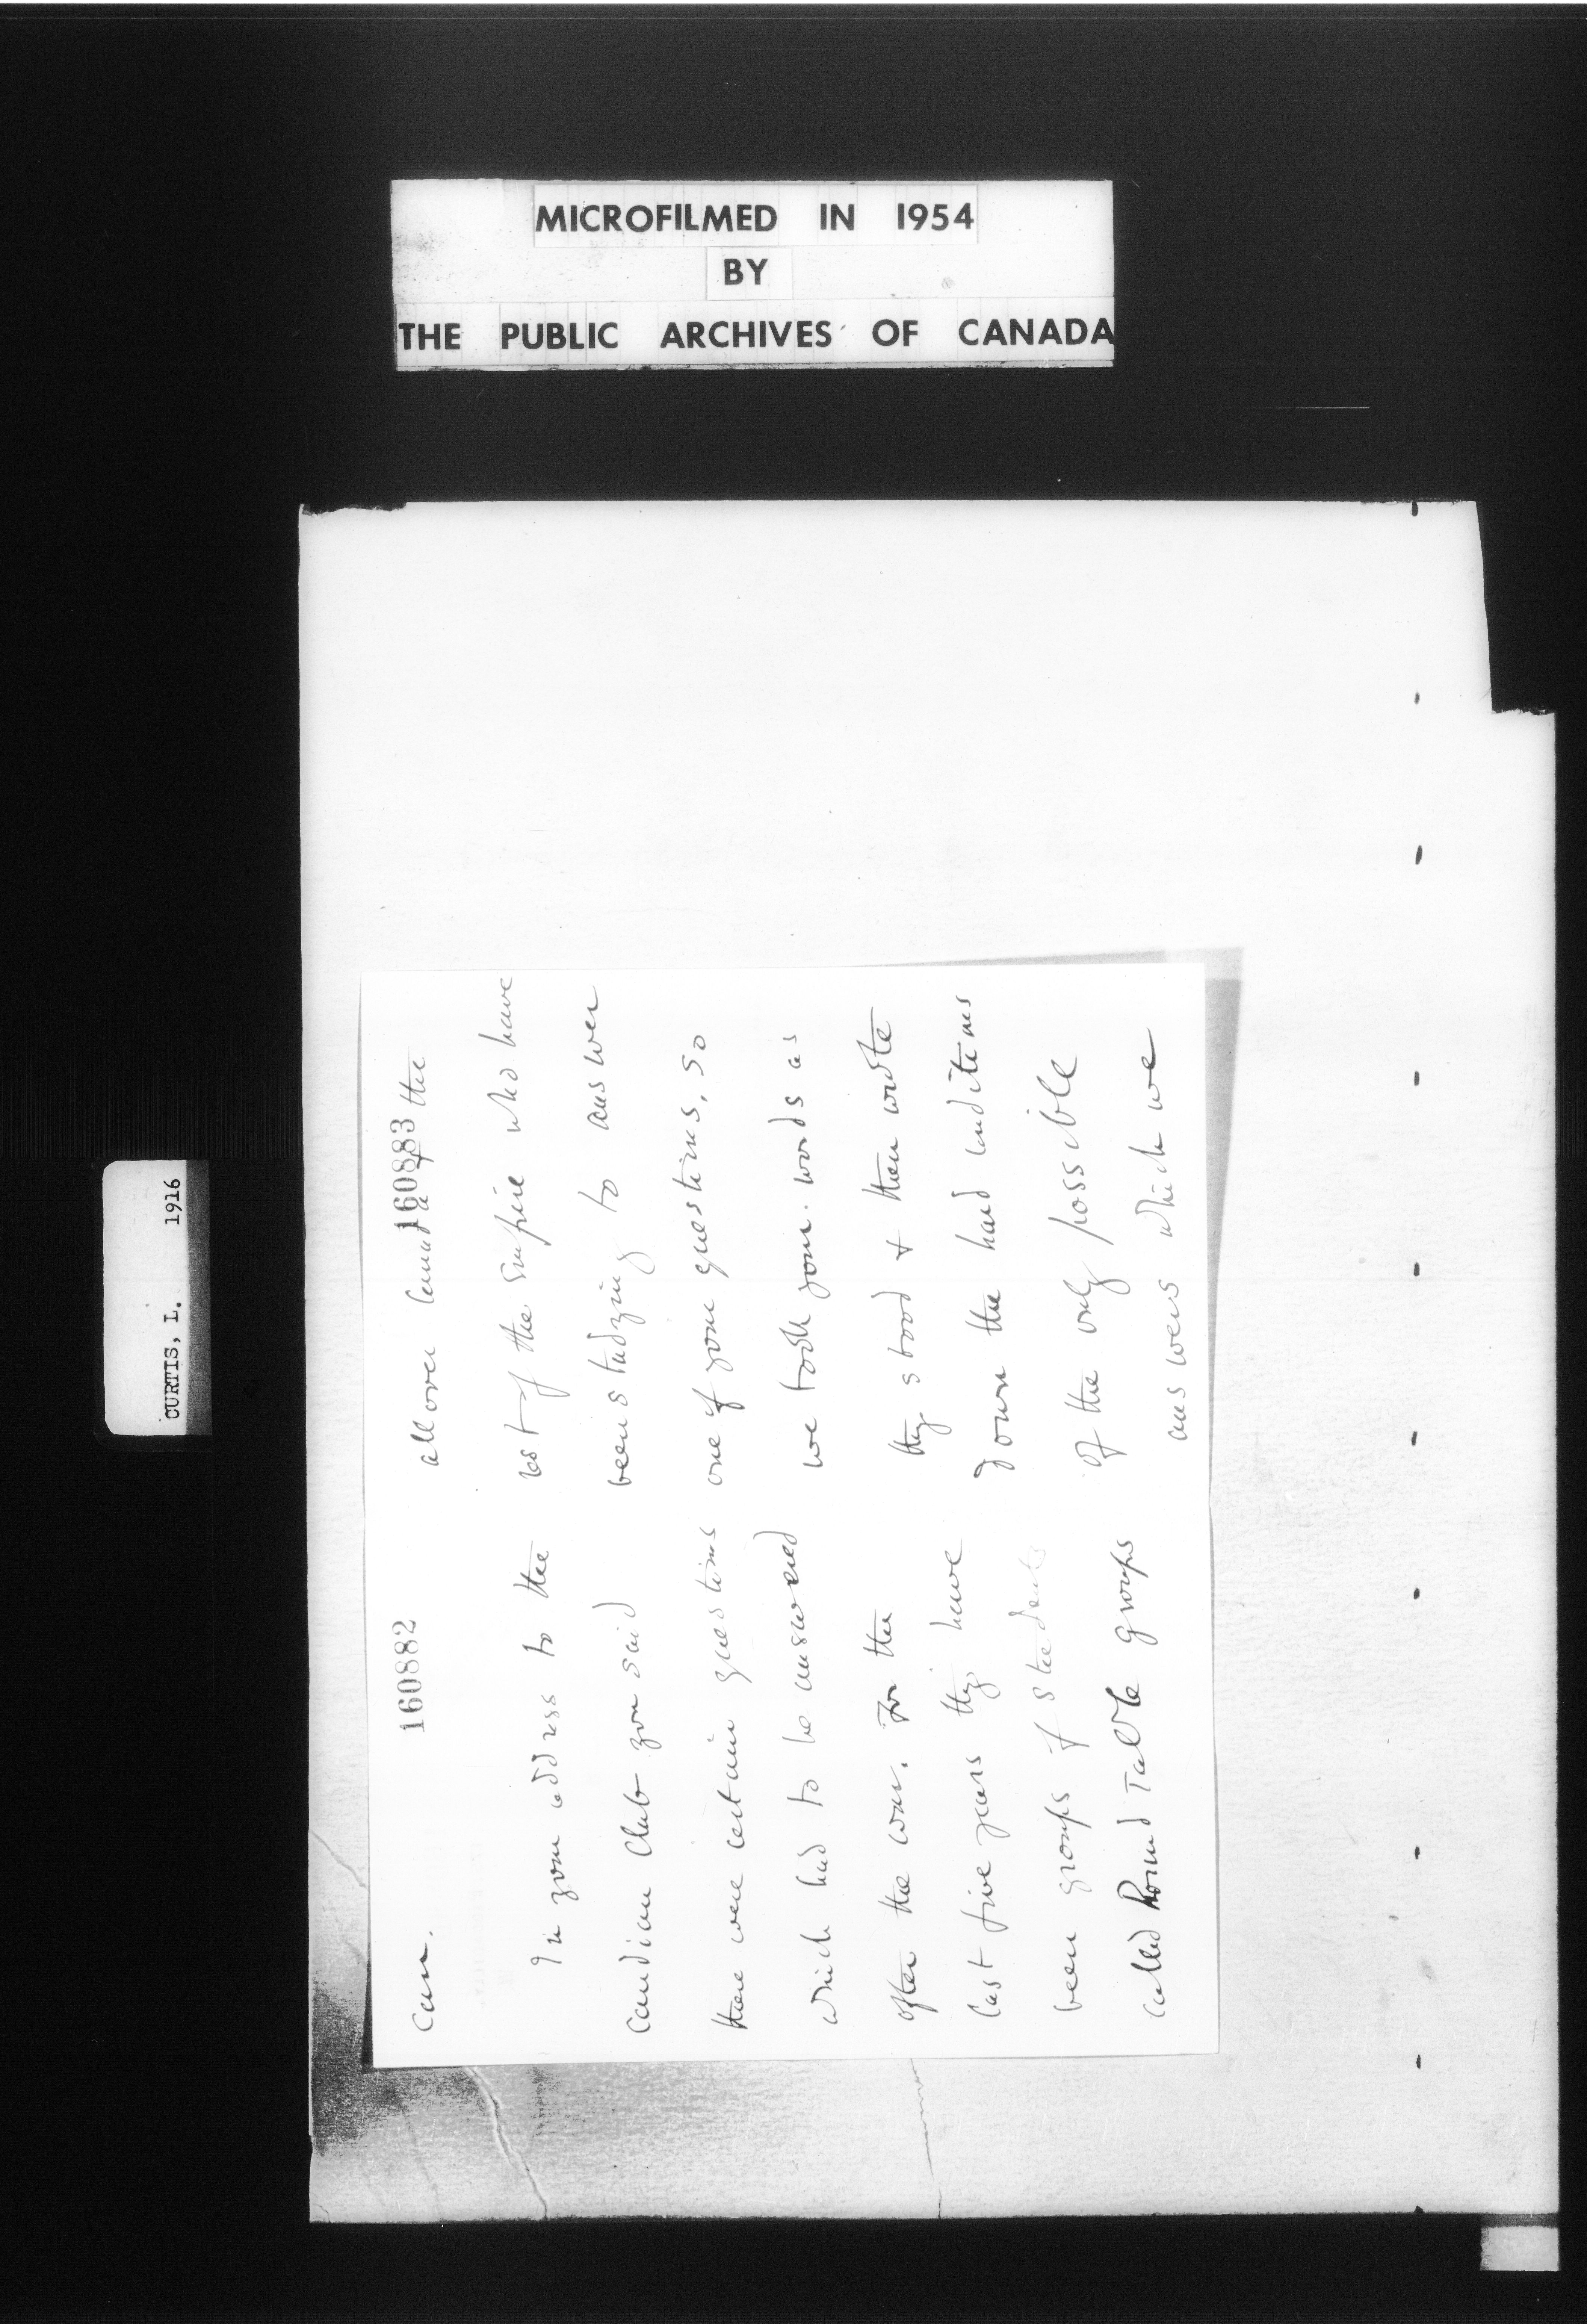 MICROFILMED IN 1954
BY
THE PUBLIC ARCHIVES OF CANADA
CURTIS, L. 1916
160882
can.
In your address to the
Canadian Club you said
there were certain questions
which had to be answered
after the war. For the
last five years they have
been groups of students
called Round Table groups
160883
all over Canada & the
rest of the Empire who have
been studying to answer
one of your questions, so
we took your words as
they stood & then wrote
down the hard conditions
of the only possible
answers which we